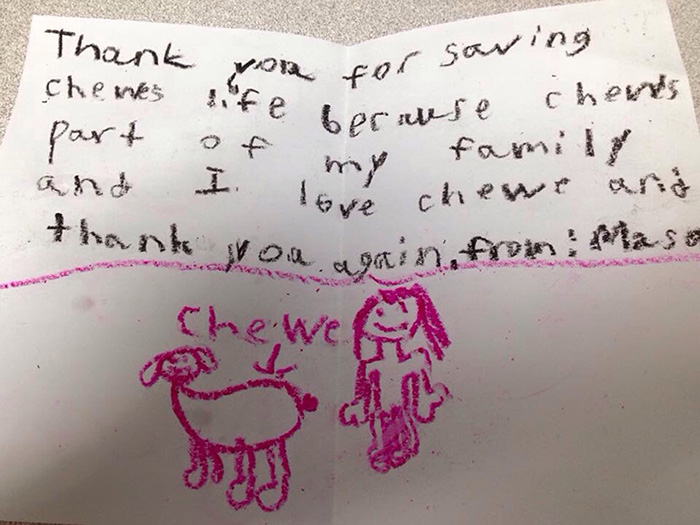 Thank you for saving
chewes life because chewes
part of my family
and I love chewe and
thank you again. from: Maso
Chewe